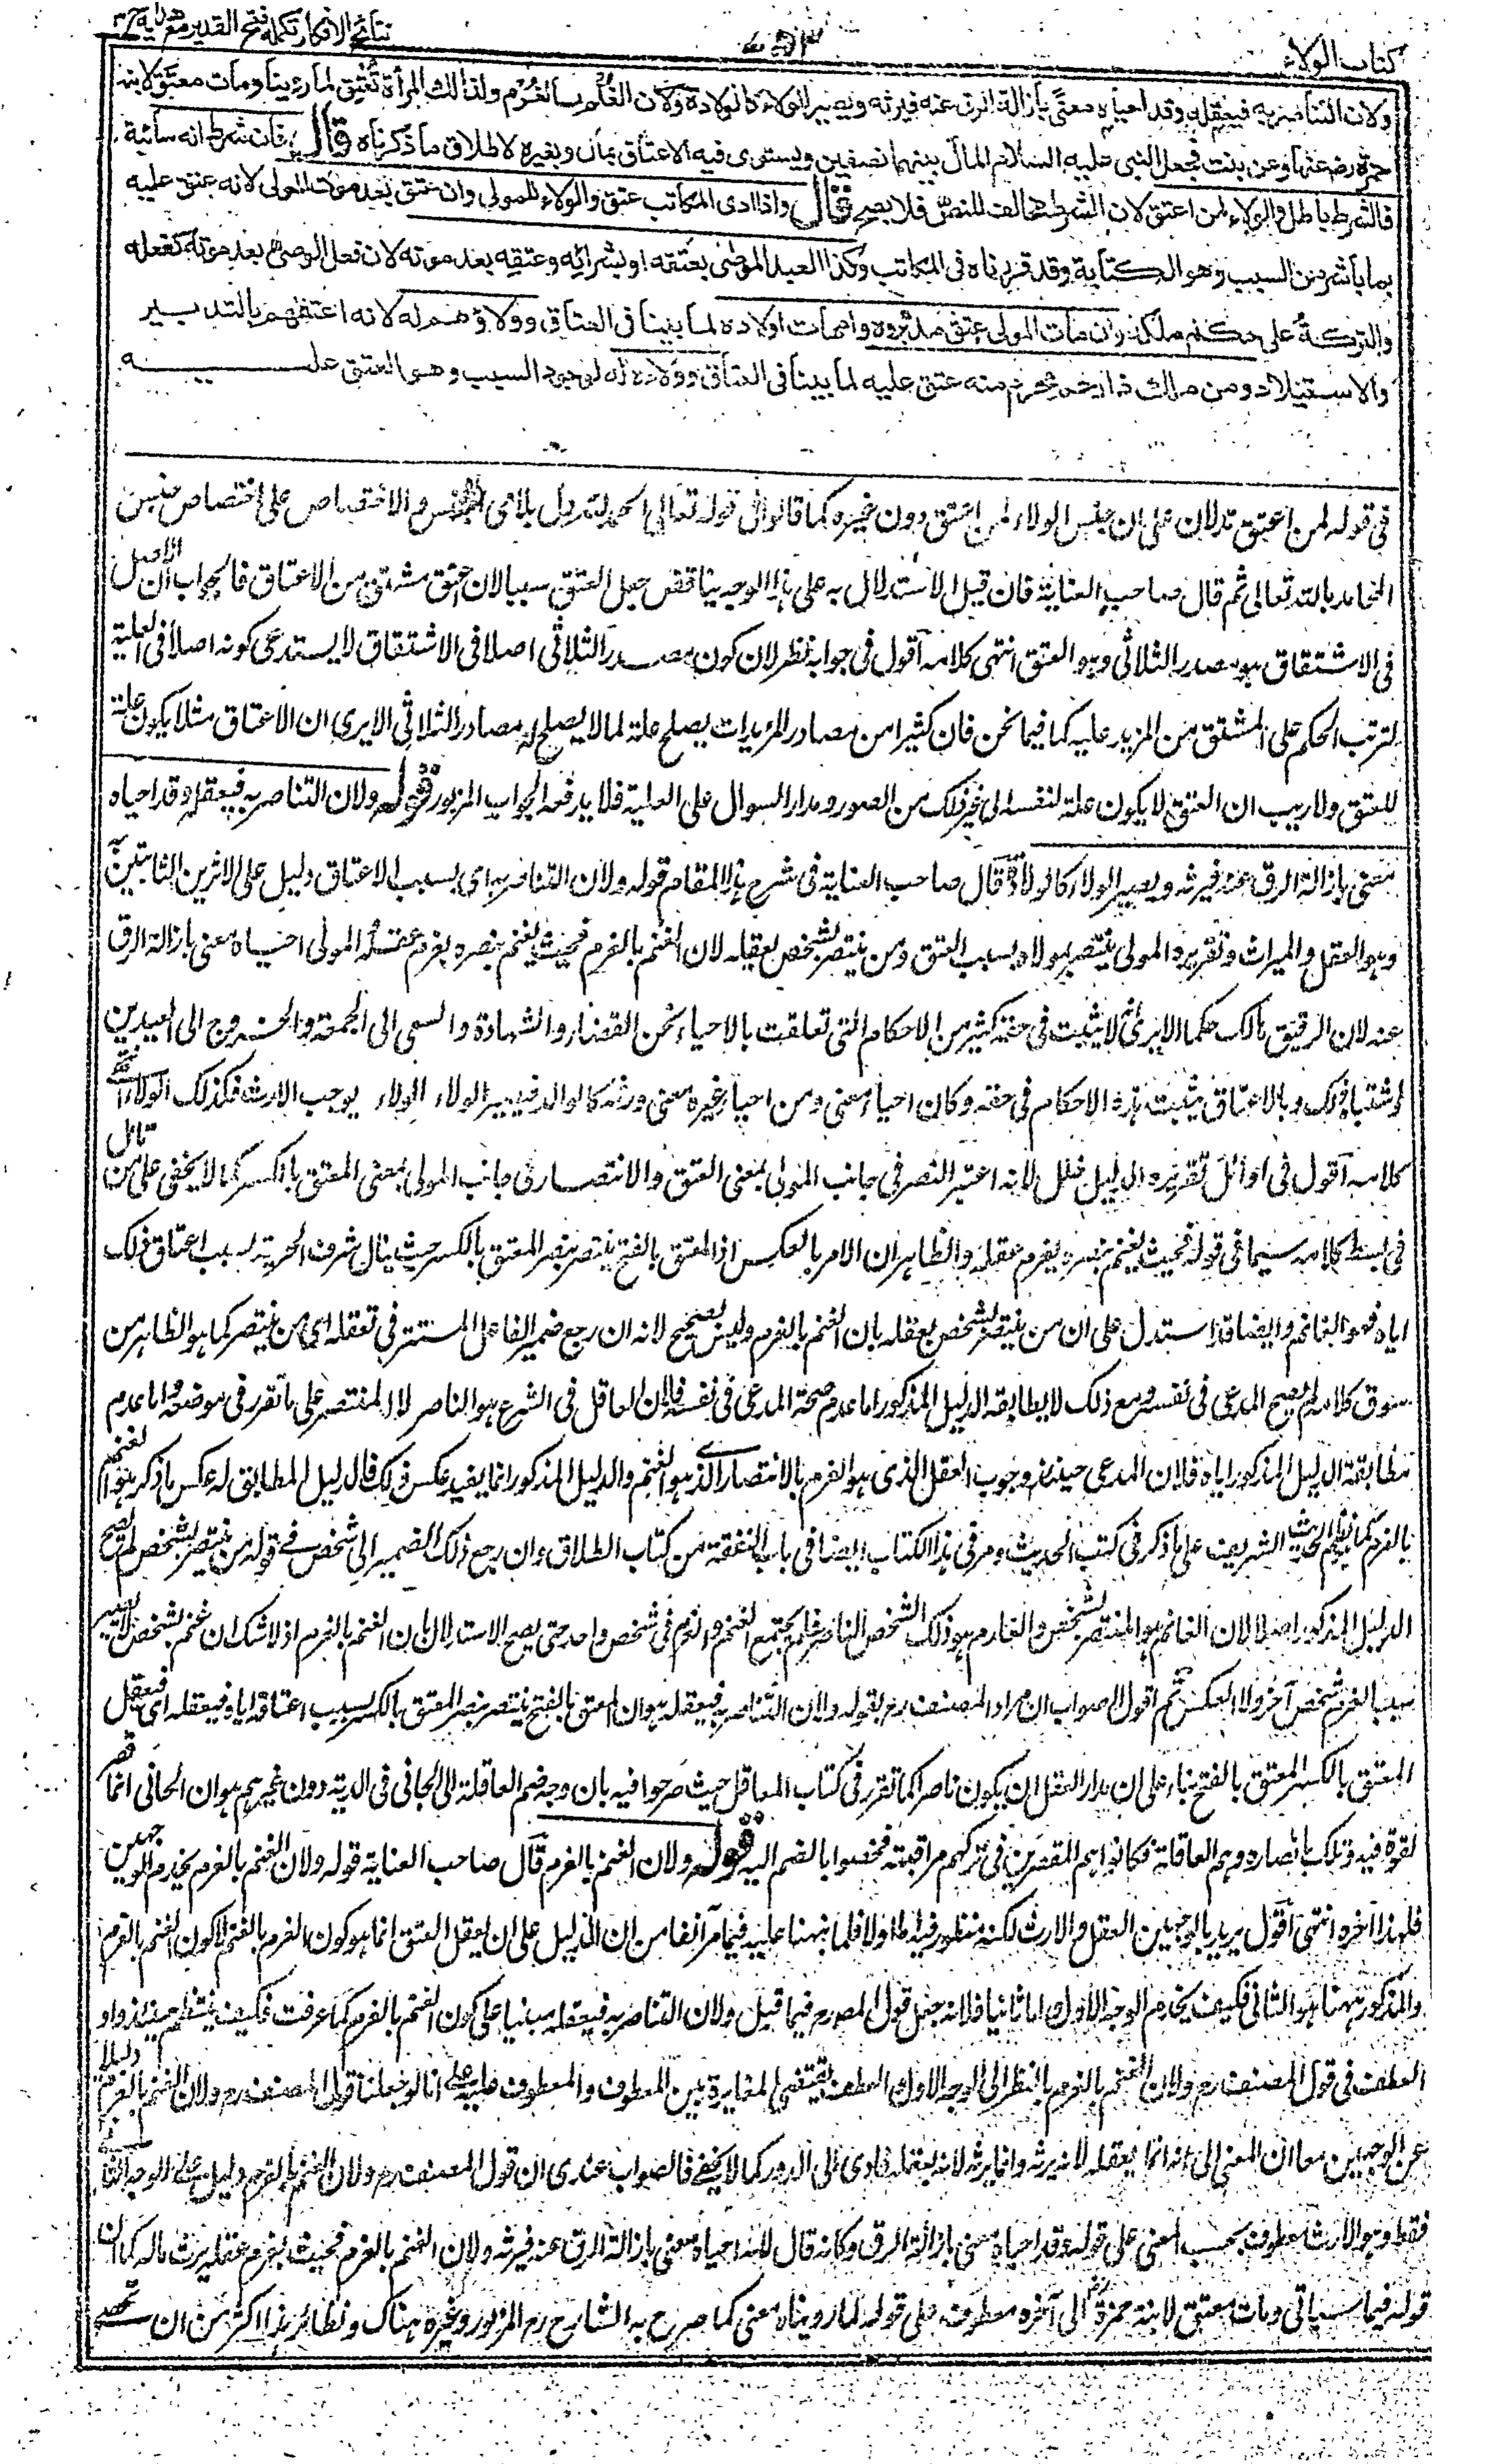 كتاب الولاء
نتائج الافكار تكملة فتح القدير مع هداية ج
ولان التناصر به فيعقله وقد احياه معنًى بازالة الرق عنه فيرثه ويصير الولاء كالولادة ولان الغنم بالغرم ولذالك المرأة تُعتِق لما روينا ومات معتَق لابنة
حمزة رض عنها وعن بنت فجعل النبي عليه السلام المال بينهما نصفين ويستوى فيه الاعتاق بمال وبغيره لاطلاق ما ذكرناه قال فان شرط انه سائبة
فالشرط باطل والولاء لمن اعتق لان الشرط مخالف للنص فلا يصح قال واذا ادى المكاتب عتق والولاء للمولى وان عتق بعد موت المولى لانه عتق عليه
بما باشر من السبب وهو الكتابة وقد قررناه فى المكاتب وكذا العبد الموصٰى بعتقه او بشرائه وعتقه بعد موته لان فعل الوصى بعد موته كفعله
والتركةُ على حكم ملكه وان مات المولى عتق مدبّروه وامهات اولاده لما بينا فى العتاق وولاؤهم له لانه اعتقهم بالتدبير
والاستيلاد ومن ملك ذا رحم محرم منه عتق عليه لما بينا فى العتاق وولاءه له لوجود السبب وهو العتق عليه
فى قوله لمن اعتق تدلان على ان جنس الولاء لمن اعتق دون غيره كما قالوا فى قوله تعالى الحمد لله يدل بلامى الجنس والاختصاص على اختصاص جنس
المحامد بالله تعالى ثم قال صاحب العناية فان قيل الاستدلال به على هذا الوجه يناقض جعل العتق سببا لان اعتق مشتق من الاعتاق فالجواب ان الاصل
فى الاشتقاق هو مصدر الثلاثى وهو العتق انتهى كلامه اقول فى جوابه نظر لان كون مصدر الثلاثى اصلا فى الاشتقاق لا يستدعى كونه اصلا فى العلية
لترتب الحكم على المشتق من المزيد عليه كما فيما نحن فان كثيرا من مصادر المزيدات يصلح علة لما لا يصلح له مصادر الثلاثى الا يرى ان الاعتاق مثلا يكون علة
للعتق ولا ريب ان العتق لا يكون علة لنفسه الى غير ذلك من الصور ومدار السوال على العلية فلا يدفعه الجواب المزبور قوله ولان التناصر به فيعقله وقد احياه
معنى بازالة الرق عنه فيرثه ويصير الولاء كالولادة قال صاحب العناية فى شرح هذا المقام قوله ولان التناصر به اى بسبب الاعتاق دليل على الاثرين الثابتين به
وهو العقل والميراث وتقريره المولى ينتصر بمولاه بسبب العتق ومن ينتصر بشخص يعقله لان الغنم بالغرم فحيث يغنم بنصره يغرم عقله والمولى احياه معنى بازالة الرق
عنه لان الرقيق هالك حكما الا يرى انه لا يثبت فى حقه كثير من الاحكام التى تعلقت بالاحياء نحو القضاء والشهادة والسعى الى الجمعة والخروج الى العيدين
واشباه ذلك وبالاعتاق يثبت هذه الاحكام فى حقه وكان احياء معنى ومن احيا غيره معنى ورثه كالوالد فيصير الولاء الولاء يوجب الارث فكذلك الولاء انتهى
كلامه اقول فى اوائل تقريره الدليل خلل لانه اعتبر النصر فى جانب المولى بمعنى العتق والانتصار فى جانب المولى بمعنى المعتق بالكسر كما لا يخفى على من تامل
فى بسط كلامه سيما فى قوله فحيث يغنم بنصره يغرم عقله والظاهر ان الامر بالعكس اذ المعتق بالفتح ينتصر بنصر المعتق بالكسر حيث ينال شرف الحرية بسبب اعتاق ذلك
اياه فهو الغانم وايضا قد استدل على ان من ينتصر بشخص يعقله بان الغنم بالغرم وليس بصحيح لانه ان رجع ضمير الفاعل المستتر فى تعقله الى من ينتصر كما هو الظاهر من
سوق كلامه لم يصح المدعى فى نفسه ومع ذلك لا يطابقه الدليل المذكور اما عدم صحة المدعى فى نفسه فلان العاقل فى الشرع هو الناصر لا المنتصر على ما تقرر فى موضعه واما عدم
مطابقة الدليل المذكور اياه فلان المدعى حينئذ وجوب العقل الذى هو الغرم بالانتصار الذى هو الغنم والدليل المذكور انما يفيد عكس ذلك فالدليل المطابق له عكس ما ذكر وهو ان الغنم
بالغرم كما نظم الحديث الشريف على ما ذكر فى كتب الحديث ومر فى هذا الكتاب ايضا فى باب النفقة من كتاب الطلاق وان رجع ذلك الضمير الى شخص فى قوله من ينتصر بشخص لم يصح
الدليل المذكور اصلا لان الغانم هو المنتصر بشخص والغارم هو ذلك الشخص الناصر فلم يجتمع الغنم والغرم فى شخص واحد حتى يصح الاستدلال بان الغنم بالغرم اذ لا شك ان غنم بشخص لا يصير
سبب الغرم شخص آخر ولا العكس ثم اقول الصواب ان مراد المصنف رح بقوله ولان التناصر به فيعقله هو ان المعتق بالفتح ينتصر بنصر المعتق بالكسر بسبب اعتاقه اياه فيعقله اى فيعقل
المعتق بالكسر المعتق بالفتح بناء على ان مدار العقل ان يكون ناصرا كما تقرر فى كتاب المعاقل حيث صرحوا فيه بان وجه ضم العاقلة الى الجانى فى الدية دون غيرهم هو ان الجانى انما قصر
لقوة فيه وتلك بانصاره وهم العاقلة فكانوا هم المقصرين فى تركهم مراقبته فخصوا بالضم اليه قوله ولان الغنم بالغرم قال صاحب العناية قوله ولان الغنم بالغرم يخدم الوجهين
فلهذا اخره انتهى اقول يريد بالوجهين العقل والارث لكنه منظور فيه اما اولا فلما نبهنا عليه فيما مر آنفا من ان الدليل على ان يعقل العتق انما هو كون الغرم بالغنم لا كون الغنم بالغرم
والمذكور ههنا هو الثانى فكيف يخدم الوجه الاول واما ثانيا فلانه جعل قول المصرح فيما قبل ولان التناصر به فيعقله مبنيا على كون الغنم بالغرم كما عرفت فكيف ينتظم حينئذ واو
العطف فى قول المصنف رح ولان الغنم بالغرم بالنظر الى الوجه الاول العطف يقتضى المغايرة بين المعطوف والمعطوف عليه على انا لو جعلنا قول المصنف رح ولان الغنم بالغرم دليلا
عن الوجهين معا ان المعنى الى انه انما يعقله لانه يرثه وانما يرثه لانه يعقله فادى الى الدور كما لا يخفى فالصواب عندى ان قول المصنف رح ولان الغنم بالغرم دليل على الوجه الثانى
فقط وهو الارث معطوف بحسب المعنى على قوله وقد احياه معنى بازالة الرق وكانه قال لانه احياه معنى بازالة الرق عنه فيرثه ولان الغنم بالغرم فحيث يغرم عقله يرث ماله كما ان
قوله فيما سيأتى ومات معتق لابنة حمزة الى آخره معطوف على قوله لما روينا معنى كما صرح به الشارح رح المزبور وغيره هناك ونظائر هذا اكثر من ان تحصى